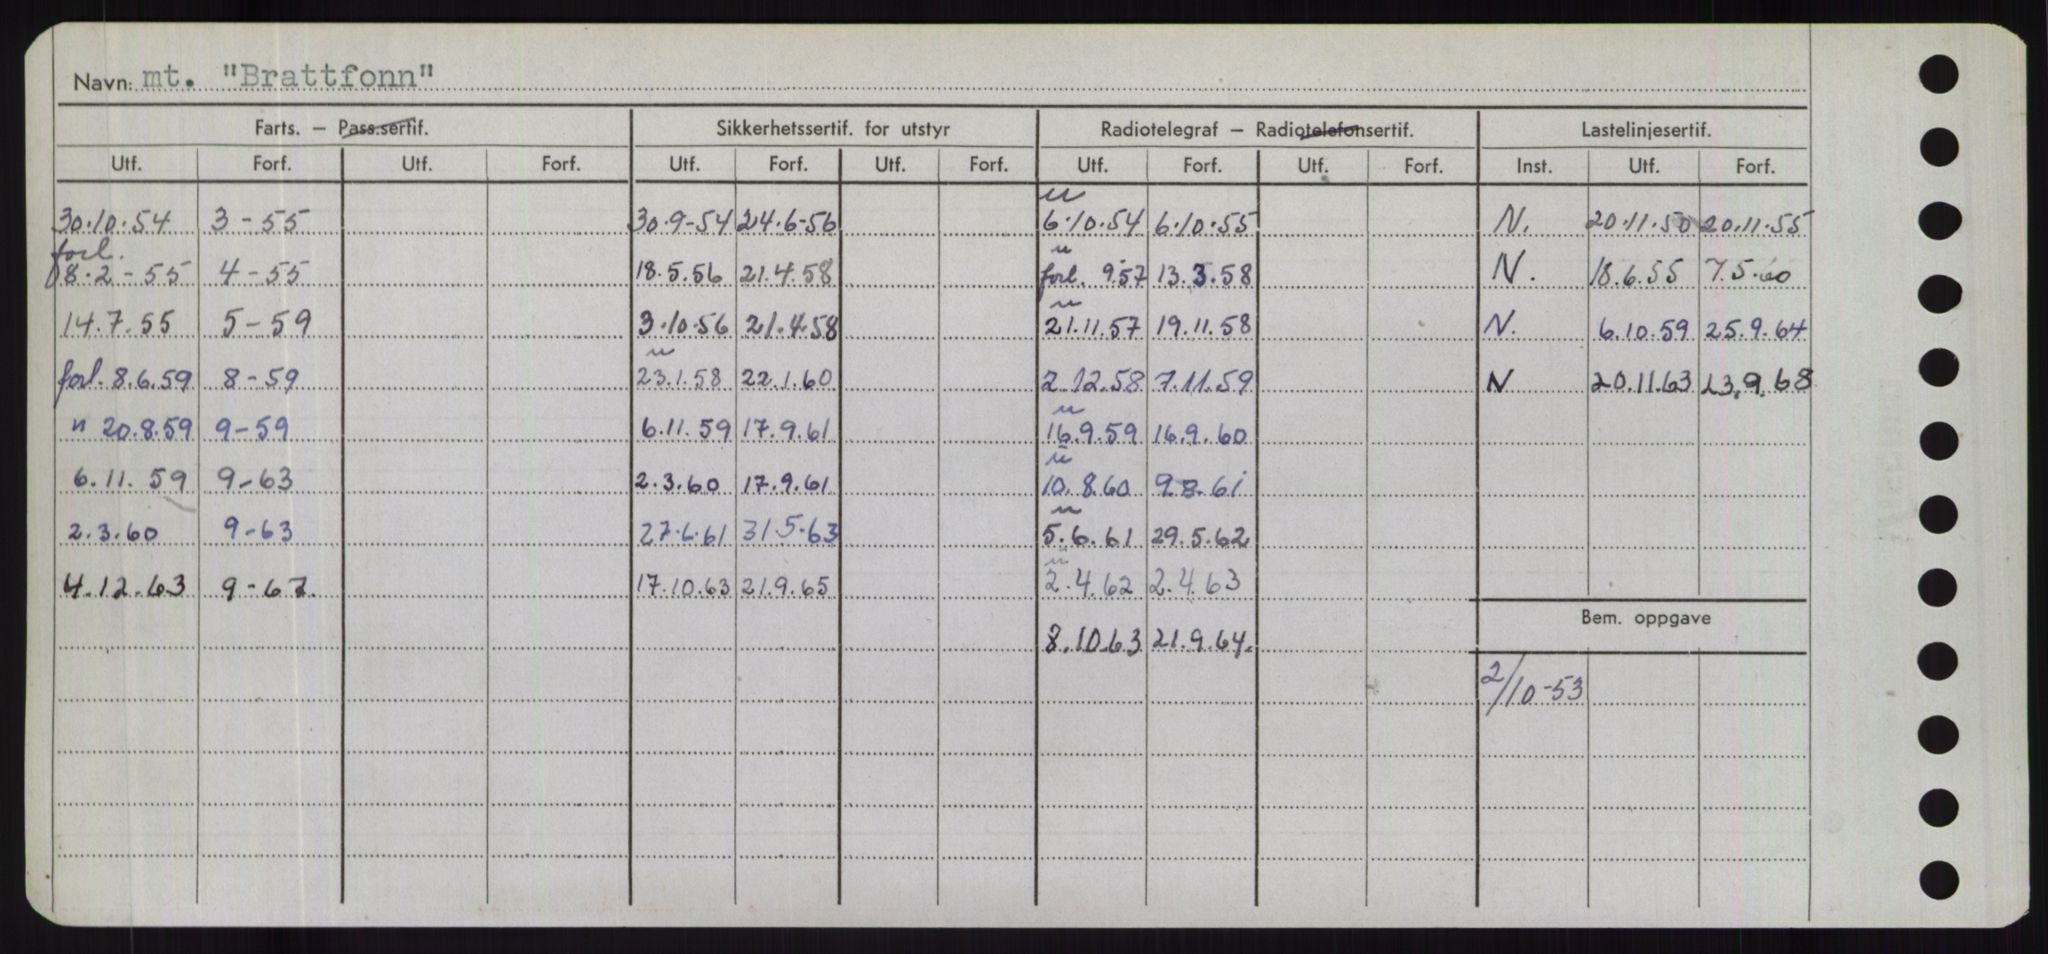 Navn: mt. "Brattfonn"
Farts. – Pass.sertif. Sikkerhetssertif. for utstyr Radiotelegraf – Radiotelefonsertif. Lastelinjesertif.
Utf. Forf. Utf. Forf. Utf. Forf. Utf. Forf. Utf. Forf. Utf. Forf. Inst. Utf. Forf.
30.10.54 3-55 30.9-54 24.6-56 6.10.54 6.10.55 N. 20.11.50 20.11.55
forl.
8.2-55 4-55 18.5.56 21.4.58 forl. 9.57 13.3.58 N. 18.6.55 7.5.60
14.7.55 5-59 3.10.56 21.4.58 21.11.57 19.11.58 N. 6.10.59 25.9.64
forl. 8.6.59 8-59 23.1.58 22.1.60 2.12.58 7.11.59 N 20.11.63 23.9.68
" 20.8.59 9-59 6.11.59 17.9.61 16.9.59 16.9.60
6.11.59 9-63 2.3.60 17.9.61 10.8.60 9.8.61
2.3.60 9-63 27.6.61 31.5-63 5.6.61 29.5.62
4.12.63 9-67. 17.10.63 21.9.65 2.4.62 2.4.63
Bem. oppgave
8.10.63 21.9.64.
2/10-53